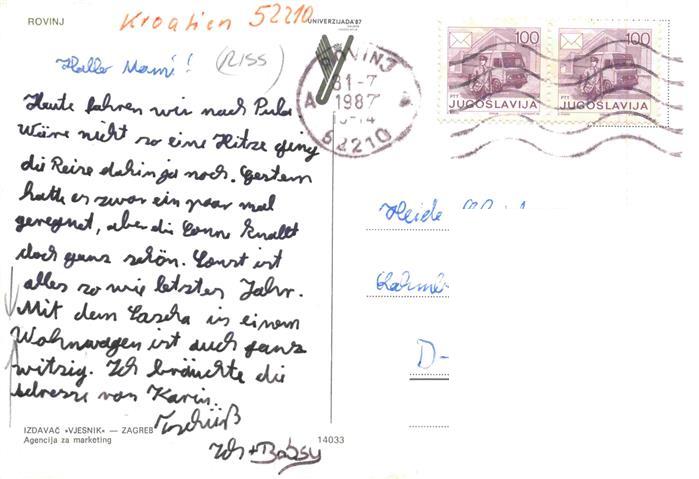 ROVINJ
Kroatien 52210
UNIVERZIJADA'87
Hallo Mami!
(RISS)
Heute fahren wir nach Pula
Wäre nicht so eine Hitze ging
die Reise dahin ja noch. Gestern
hatte es zwar ein paar mal
geregnet, aber die Sonne knallt
doch ganz schön. Sonst ist
alles so wie letztes Jahr.
Mit dem Sascha in einem
Wohnwagen ist auch ganz
witzig. Ich bräuchte die
Adresse von Karin.
Tschüß
Ich + Babsy
IZDAVAČ »VJESNIK« — ZAGREB
Agencija za marketing
14033
ROVINJ
31-7
1987
52210
100
PTT JUGOSLAVIJA
100
PTT JUGOSLAVIJA
Heide
D-